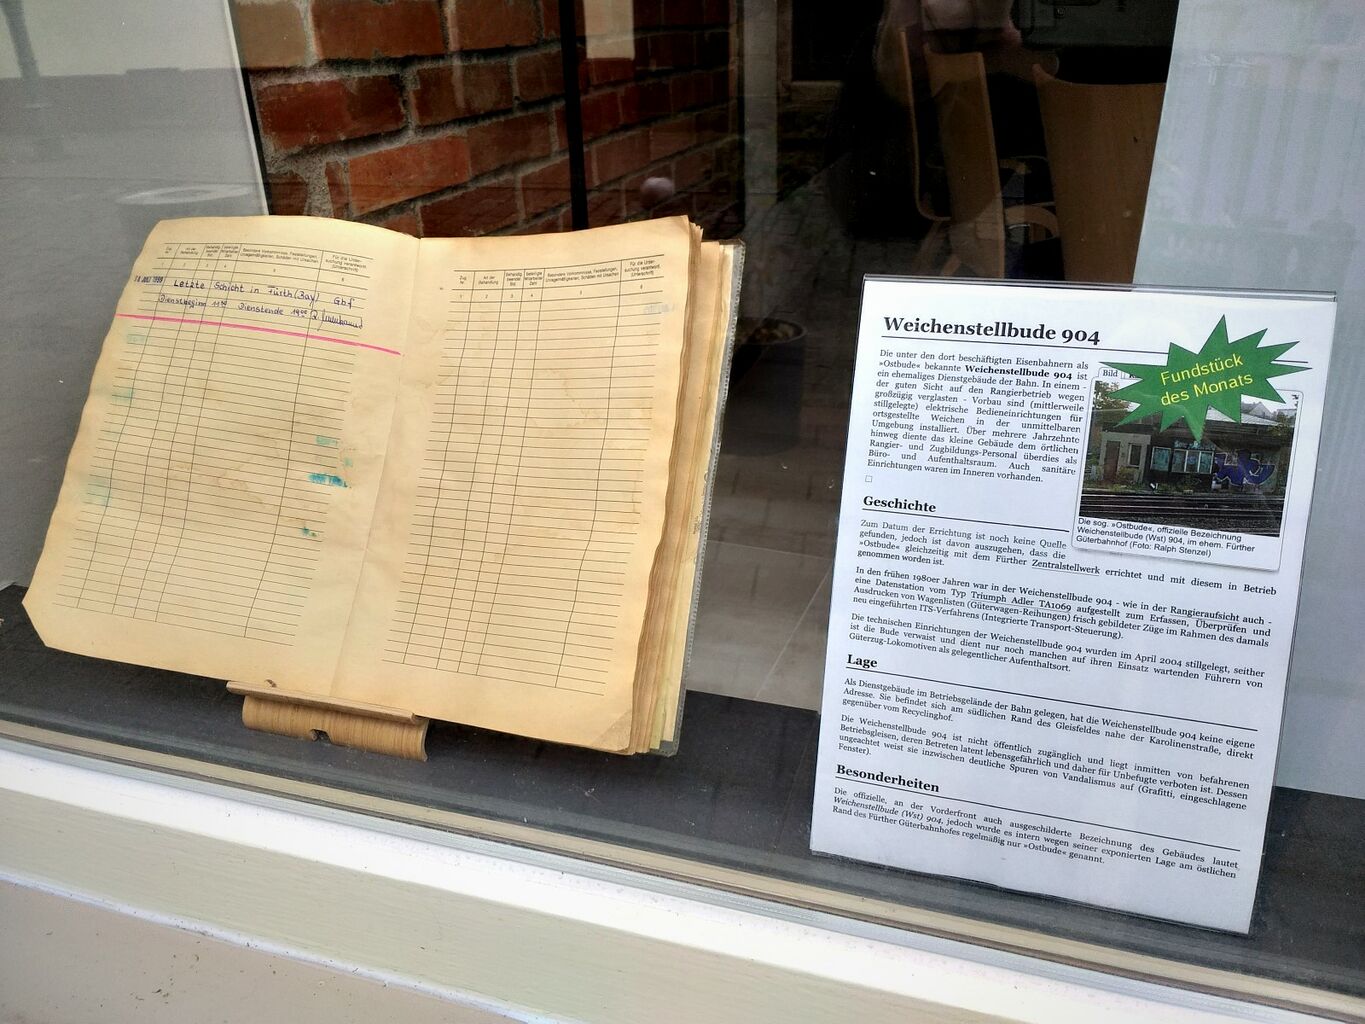 Zug Nr.
Art der Behandlung
Behandlg. beendet Std.
beteiligte Mitarbeiter Zahl
Besondere Vorkommnisse, Feststellungen, Unregelmäßigkeiten, Schäden mit Ursachen
Für die Untersuchung verantwortl. (Unterschrift)
1 2 3 4 5 6
JULI 1999 Letzte Schicht in Fürth (Bay) Gbf
Dienstbeginn 11 Dienstende 19
Zug Nr.
Art der Behandlung
Behandlg. beendet Std.
beteiligte Mitarbeiter Zahl
Besondere Vorkommnisse, Feststellungen, Unregelmäßigkeiten, Schäden mit Ursachen
Für die Untersuchung verantwortl. (Unterschrift)
1 2 3 4 5 6
Weichenstellbude 904
Die unter den dort beschäftigten Eisenbahnern als
»Ostbude« bekannte Weichenstellbude 904 ist
ein ehemaliges Dienstgebäude der Bahn. In einem -
der guten Sicht auf den Rangierbetrieb wegen
großzügig verglasten - Vorbau sind (mittlerweile
stillgelegte) elektrische Bedieneinrichtungen für
ortsgestellte Weichen in der unmittelbaren
Umgebung installiert. Über mehrere Jahrzehnte
hinweg diente das kleine Gebäude dem örtlichen
Rangier- und Zugbildungs-Personal überdies als
Büro- und Aufenthaltsraum. Auch sanitäre
Einrichtungen waren im Inneren vorhanden.
Bild
Fundstück
des Monats
Die sog. »Ostbude«, offizielle Bezeichnung
Weichenstellbude (Wst) 904, im ehem. Fürther
Güterbahnhof (Foto: Ralph Stenzel)
Geschichte
Zum Datum der Errichtung ist noch keine Quelle
gefunden, jedoch ist davon auszugehen, dass die
»Ostbude« gleichzeitig mit dem Fürther Zentralstellwerk errichtet und mit diesem in Betrieb
genommen worden ist.
In den frühen 1980er Jahren war in der Weichenstellbude 904 - wie in der Rangieraufsicht auch -
eine Datenstation vom Typ Triumph Adler TA1069 aufgestellt zum Erfassen, Überprüfen und
Ausdrucken von Wagenlisten (Güterwagen-Reihungen) frisch gebildeter Züge im Rahmen des damals
neu eingeführten ITS-Verfahrens (Integrierte Transport-Steuerung).
Die technischen Einrichtungen der Weichenstellbude 904 wurden im April 2004 stillgelegt, seither
ist die Bude verwaist und dient nur noch manchen auf ihren Einsatz wartenden Führern von
Güterzug-Lokomotiven als gelegentlicher Aufenthaltsort.
Lage
Als Dienstgebäude im Betriebsgelände der Bahn gelegen, hat die Weichenstellbude 904 keine eigene
Adresse. Sie befindet sich am südlichen Rand des Gleisfeldes nahe der Karolinenstraße, direkt
gegenüber vom Recyclinghof.
Die Weichenstellbude 904 ist nicht öffentlich zugänglich und liegt inmitten von befahrenen
Betriebsgleisen, deren Betreten latent lebensgefährlich und daher für Unbefugte verboten ist. Dessen
ungeachtet weist sie inzwischen deutliche Spuren von Vandalismus auf (Grafitti, eingeschlagene
Fenster).
Besonderheiten
Die offizielle, an der Vorderfront auch ausgeschilderte Bezeichnung des Gebäudes lautet
Weichenstellbude (Wst) 904, jedoch wurde es intern wegen seiner exponierten Lage am östlichen
Rand des Fürther Güterbahnhofes regelmäßig nur »Ostbude« genannt.